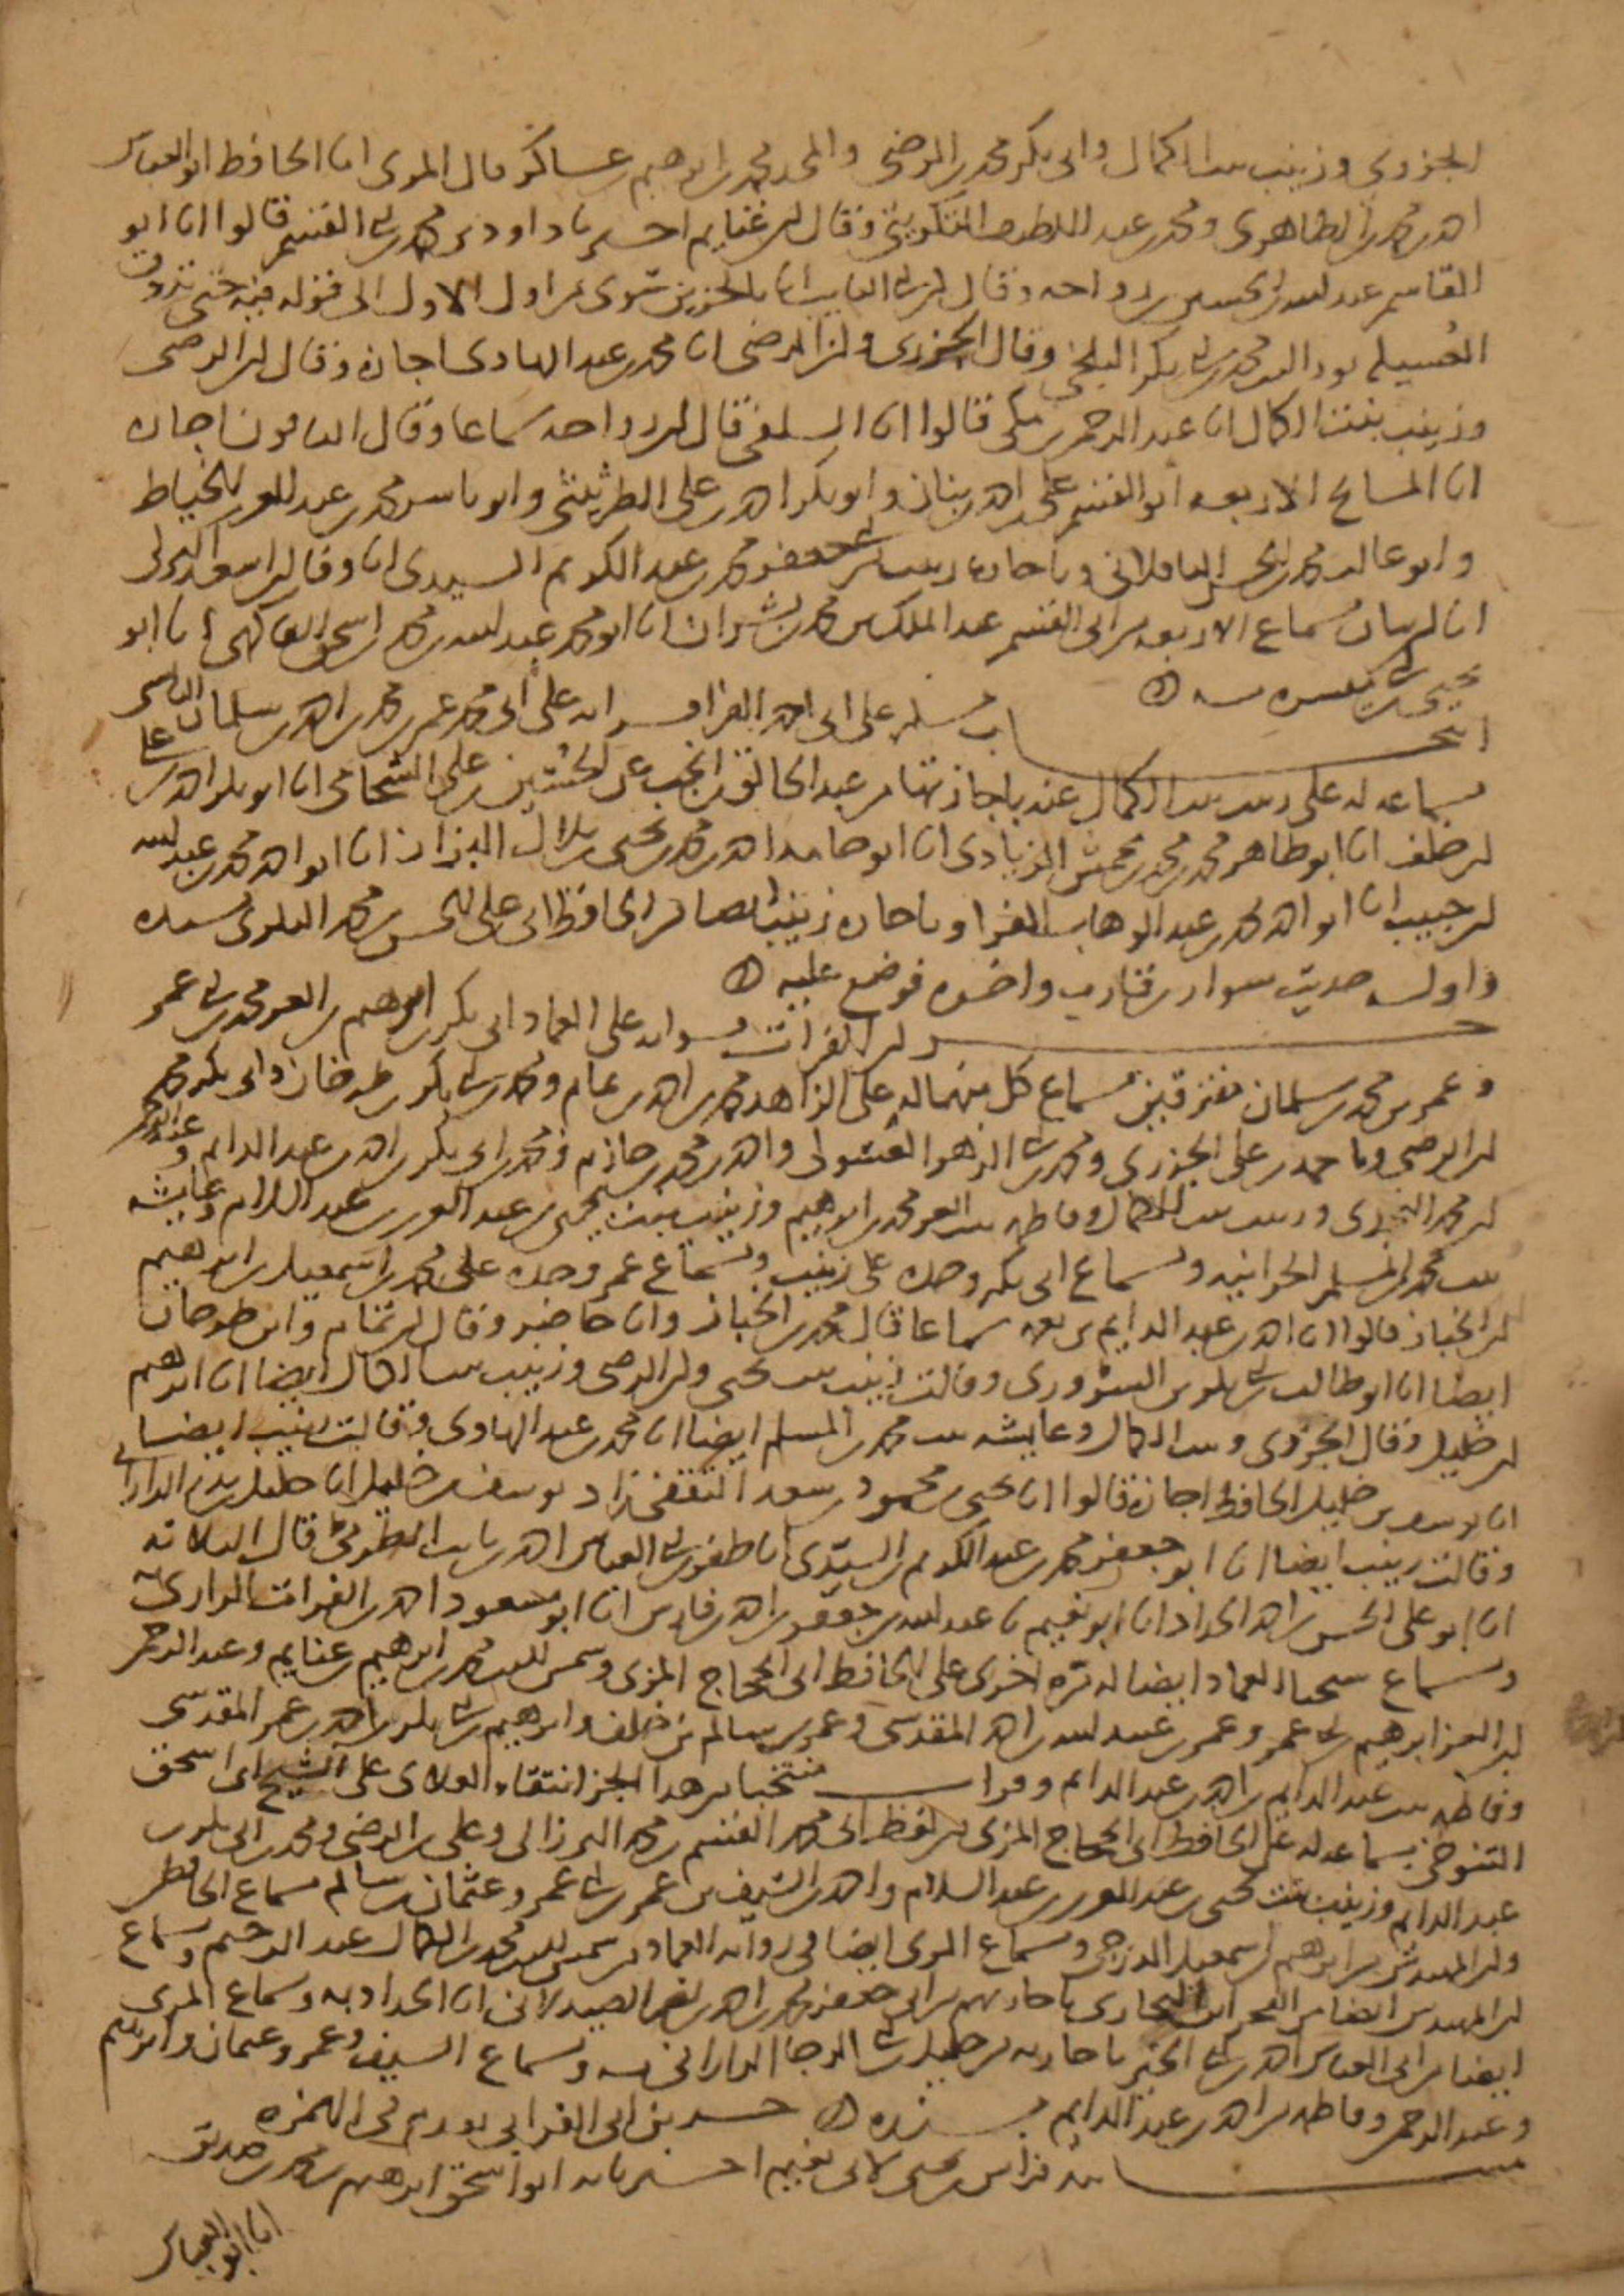 الجزري وزينب بنت الكمال وابى بكر محمد بن الرضي والمجد محمد بن ابراهيم بن عساكر قال المزي انا الحافظ ابو العباس
احمد بن محمد الظاهري ومحمد بن عبد اللطيف وقال ابن غنايم اخبرنا داود بن محمد بن ابي القسم قالوا انا ابو
القاسم عبد الله بن الحسين بن رواحه وقال ابن النايب انا بالجزين سوى من اول الاول الى قوله فيه حتى تذوق
العسيله محمد بن ابي بكر البلخي وقال الجزري وابن الرضي انا محمد بن عبد الهادي اجازة وقال ابن الرضي
وزينب بنت الكمال انا عبد الرحمن بن مكي قالوا انا السلفي قال ابن رواحه سماعا وقال الباقون اجازه
انا المشايخ الاربعه ابو القسم علي بن احمد بن بنان وابو بكر احمد بن علي الطريثيثي وابو ياسر محمد بن عبد العزيز الخياط
وابو غالب محمد بن الحسن الباقلاني وباجازه زينب من ابي جعفر محمد بن عبد الكريم السيدي انا
سماع الاربعه من ابي القسم عبد الملك بن محمد بن بشران انا ابو محمد عبد الله بن محمد بن اسحق الفاكهي انا ابو
يحيى بن ابي ميسره به
انتخاب مسلم على ابي احمد الفرا قراته على ابي محمد عمر بن محمد بن احمد بن سلمان البالسي
بسماعه له على زينب بنت الكمال عنه باجازتها من عبد الخالق بن انجب عن الشحامي انا ابو بكر احمد بن علي
ابن خلف انا ابو طاهر محمد بن محمد بن محمش الزيادي انا ابو حامد احمد بن محمد بن يحيى بن بلال البزاز انا ابو احمد محمد بن عبد الله
ابن حبيب انا ابو احمد محمد بن عبد الوهاب الفرا وباجازه زينب ايضا من الحافظ ابي علي الحسن بن محمد البكري بسنده
واوله حديث سواد بن قارب واخره فوضع عليه
جزو ابن الفرات قراته على العماد ابي بكر بن ابرهيم بن العز محمد بن ابي عمر
وعمر بن محمد بن سلمان مفترقين بسماع كل منهما له على الزاهد محمد بن احمد بن تمام ومحمد بن ابي بكر بن طرخان وابي بكر بن محمد
ابن الرضي وبا احمد بن علي الجزري ومحمد بن ابي الزهر الغسولي واحمد بن محمد بن حازم ومحمد بن ابي بكر بن احمد بن عبد الدايم وعبد الرحيم
ابن محمد وزينب بنت الكمال وفاطمه بنت العز محمد بن ابراهيم وزينب بنت يحيى بن عبد العزيز بن عبد السلام وعايشه
بنت محمد بن المسلم الحرانيه وسماع ابي بكر وحده على زينب وسماع عمر وحده على محمد بن اسمعيل بن ابراهيم
ابن الخباز قالوا انا احمد بن عبد الدايم بن نعمه سماعا قال محمد بن الخباز وانا حاضر وقال ابن تمام وابن طرخان
ايضا انا ابو طالب بن ابي بكر بن السروري وقالت زينب بنت يحيى وابن الرضي وزينب بنت الكمال ايضا انا ابرهيم
ابن خليل وقال الجزري وبنت الكمال وعايشه بنت محمد بن المسلم ايضا انا محمد بن عبد الهادي وقالت زينب ايضا
انا يوسف بن خليل الحافظ اجازة قالوا انا يحيى بن محمود بن سعد الثقفي زاد يوسف بن خليل انا خليل بن بدر الداراني
وقالت زينب ايضا انا ابو جعفر محمد بن عبد الكريم السيدي انا ابي العباس احمد بن ثابت الطرقي قال الثلاثه
انا ابو علي الحسن بن احمد الحداد انا ابو نعيم نا عبد الله بن جعفر بن احمد بن فارس انا ابو مسعود احمد بن الفرات الرازي به
وسماع شيخنا العماد ايضا له مره اخرى على الحافظ ابي الحجاج المزي وشمس الدين محمد بن ابرهيم بن غنايم وعبد الرحمن
ابن العز ابرهيم بن ابي عمر وعمر بن عبيد الله بن احمد المقدسي وعمر بن سالم بن خلف وابرهيم بن ابي بكر بن احمد بن عمر المقدسي
وفاطمه بنت عبد الدايم بن احمد بن عبد الدايم وقرات منتخبا من هذا الجزء انتقاء العلاى على الشيخ ابي اسحق
التنوخي بسماعه له على الحافظ ابي الحجاج المزي من لفظ ابي محمد القسم بن محمد البرزالي وعلي بن الرضي ومحمد بن ابي بكر بن
عبد الدايم وزينب بنت يحيى بن عبد العزيز بن عبد السلام واحمد بن الشريف بن عمر بن ابي عمر وعثمان بن سالم بسماع الحافظ
وابن المهندس من ابرهيم بن اسمعيل الدرجي وسماع المزي ايضا في رواية العماد من شمس الدين محمد بن الكمال عبد الرحيم وسماع
ابن المهندس ايضا من الفخر ابن البخاري باجازتهم من ابي جعفر محمد بن احمد بن نصر الصيدلاني انا الحداد به وسماع المزي
ايضا من ابي العباس احمد بن ابي الخير باجازته من خليل بن ابي الرجا الداراني به وسماع السيف وعمر وعثمان وابرهيم
وعبد الرحمن وفاطمه من احمد بن عبد الدايم بسنده حديث ابى الفرابى تقدم في الهمزه
مسند فراس بن يحيى لابي نعيم اخبرنا به ابو اسحق ابرهيم بن محمد بن صديق
انا ابو العباس